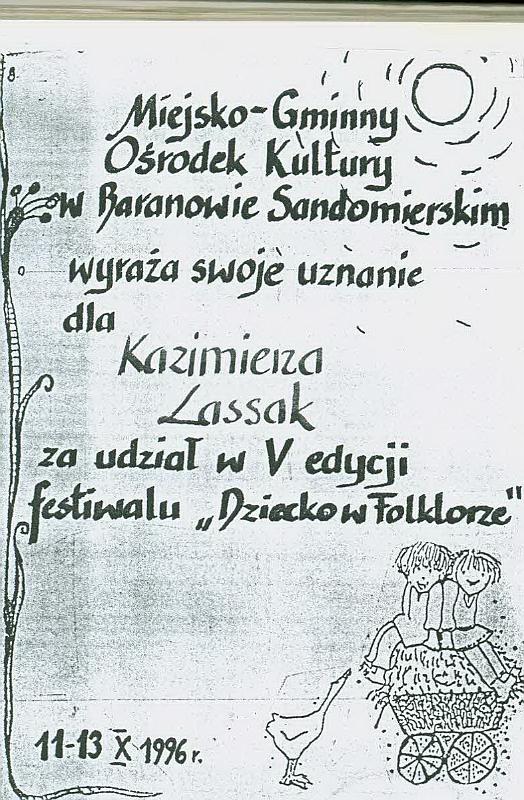 Miejsko-Gminny
Ośrodek Kultury
w Baranowie Sandomierskim
wyraża swoje uznanie
dla
Kazimierza
Lassak
za udział w V edycji
festiwalu „Dziecko w Folklorze"
11-13 X 1996 r.